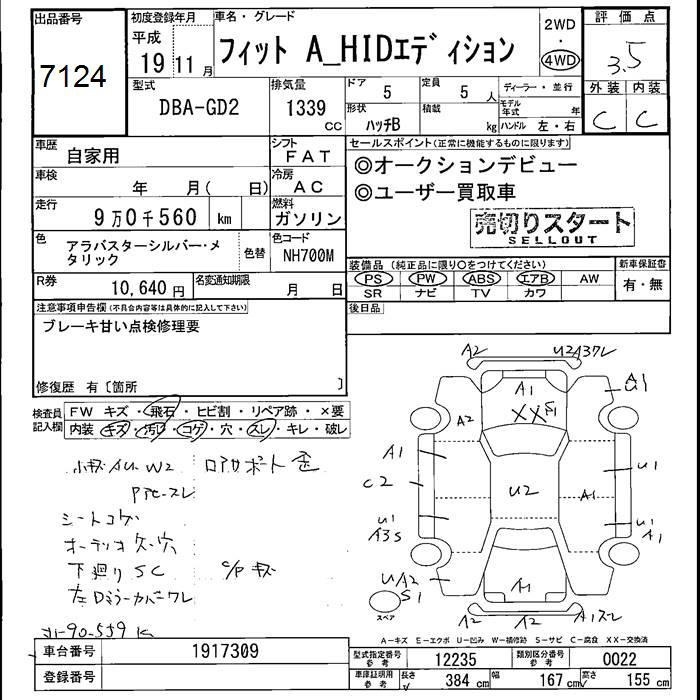 出品番号
7124
初度登録年月
平成
19年11月
車名・グレード
フィット A_HIDエディション
2WD
・
4WD
評価点
3.5
外装 内装
C C
型式
DBA-GD2
排気量
1339
CC
ドア
5
定員
5人
形状
ハッチB
積載
kg
ディーラー・並行
モデル年式 年
ハンドル 左・右
車歴
自家用
シフト
FAT
車検
年 月( 日)
冷房
AC
走行
9万0千560 km
燃料
ガソリン
色
アラバスターシルバー・メタリック
色替
色コード
NH700M
R券
10,640円
名変通知期限
月 日
セールスポイント(正常に機能するものに限ります)
◎オークションデビュー
◎ユーザー買取車
売切りスタート
SELLOUT
装備品(純正品に限り○をつけてください)
PS PW ABS エアB AW
SR ナビ TV カワ
新車保証書
有・無
後日品
注意事項申告欄(不具合内容等は具体的に記入して下さい)
ブレーキ甘い点検修理要
修復歴 有〔箇所 〕
検査員記入欄
FW キズ・飛石・ヒビ割・リペア跡・×要
内装 キズ・汚れ・コゲ・穴・スレ・キレ・破レ
小キズ AU W2
シートコゲ
下廻りSC
C/P キズ
左Dミラーカバーワレ
A2
U2
A1
XX
A2
A1
C2
U2
U1
A1
U1
A3S
U1
A1
UA2
S1
A1
A2
A2
スペア
A-キズ E-エクボ U-凹み W-補修跡 S-サビ C-腐食 XX-交換済
車台番号
1917309
登録番号
型式指定番号 参考
12235
類別区分番号 参考
0022
車庫証明用 参考
長さ 384 cm
幅 167 cm
高さ 155 cm